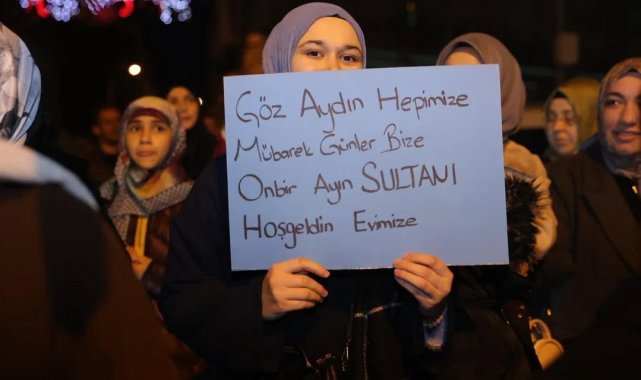 Göz Aydın Hepimize
Mübarek Günler Bize
Onbir Ayın SULTANI
Hoşgeldin Evimize